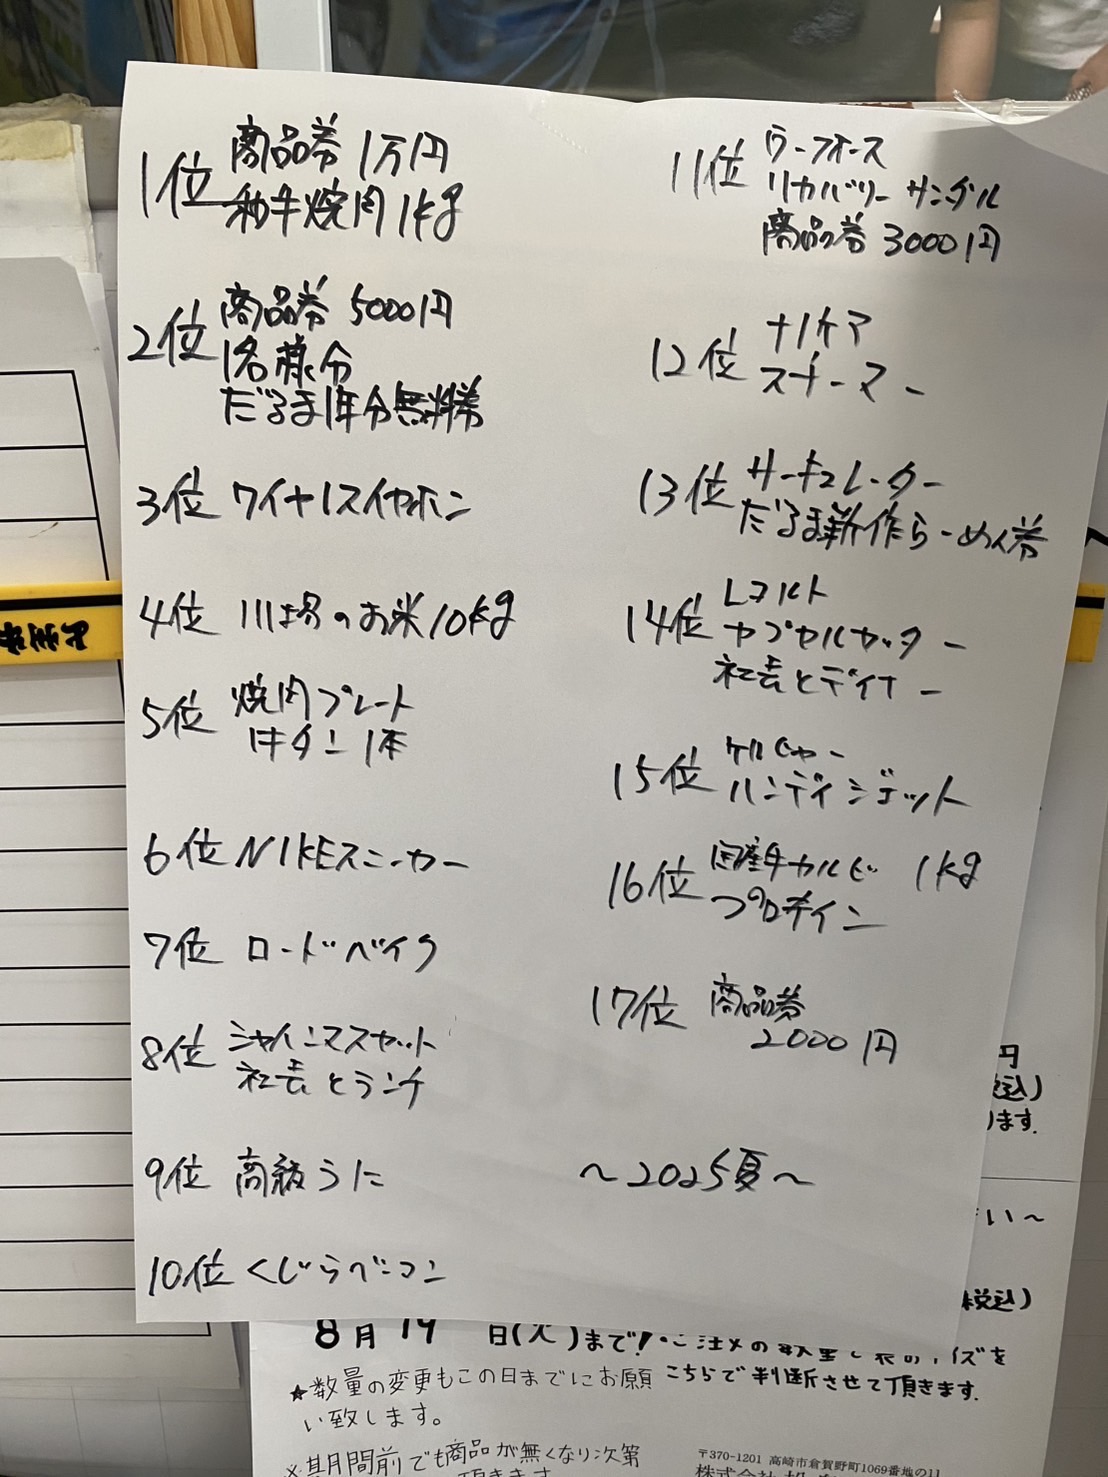 1位 商品券 1万円
和牛焼肉1kg
2位 商品券 5000円
1名様分
だるま1年分無料券
3位 ワイヤレスイヤホン
4位 川場のお米10kg
5位 焼肉プレート
牛タン1本
6位 NIKEスニーカー
7位 ロードバイク
8位 シャインマスカット
社長とランチ
9位 高級うに
10位 くじらベーコン
11位 ウーフォース
リカバリーサンダル
商品券 3000円
12位 ナノケア
スチーマー
13位 サーキュレーター
だるま新作らーめん券
14位 レコルト
カプセルカッター
社長とディナー
15位 ケルヒャー
ハンディジェット
16位 国産牛カルビ 1kg
プロテイン
17位 商品券
2000円
〜2025夏〜
円
税込)
ります.
さい〜
税込)
8月19日(火)まで!
こちらで判断させて頂きます.
★数量の変更もこの日までにお願
い致します。
※期間前でも商品が無くなり次第
〒370-1201 高崎市倉賀野町1069番地の11
株式会社